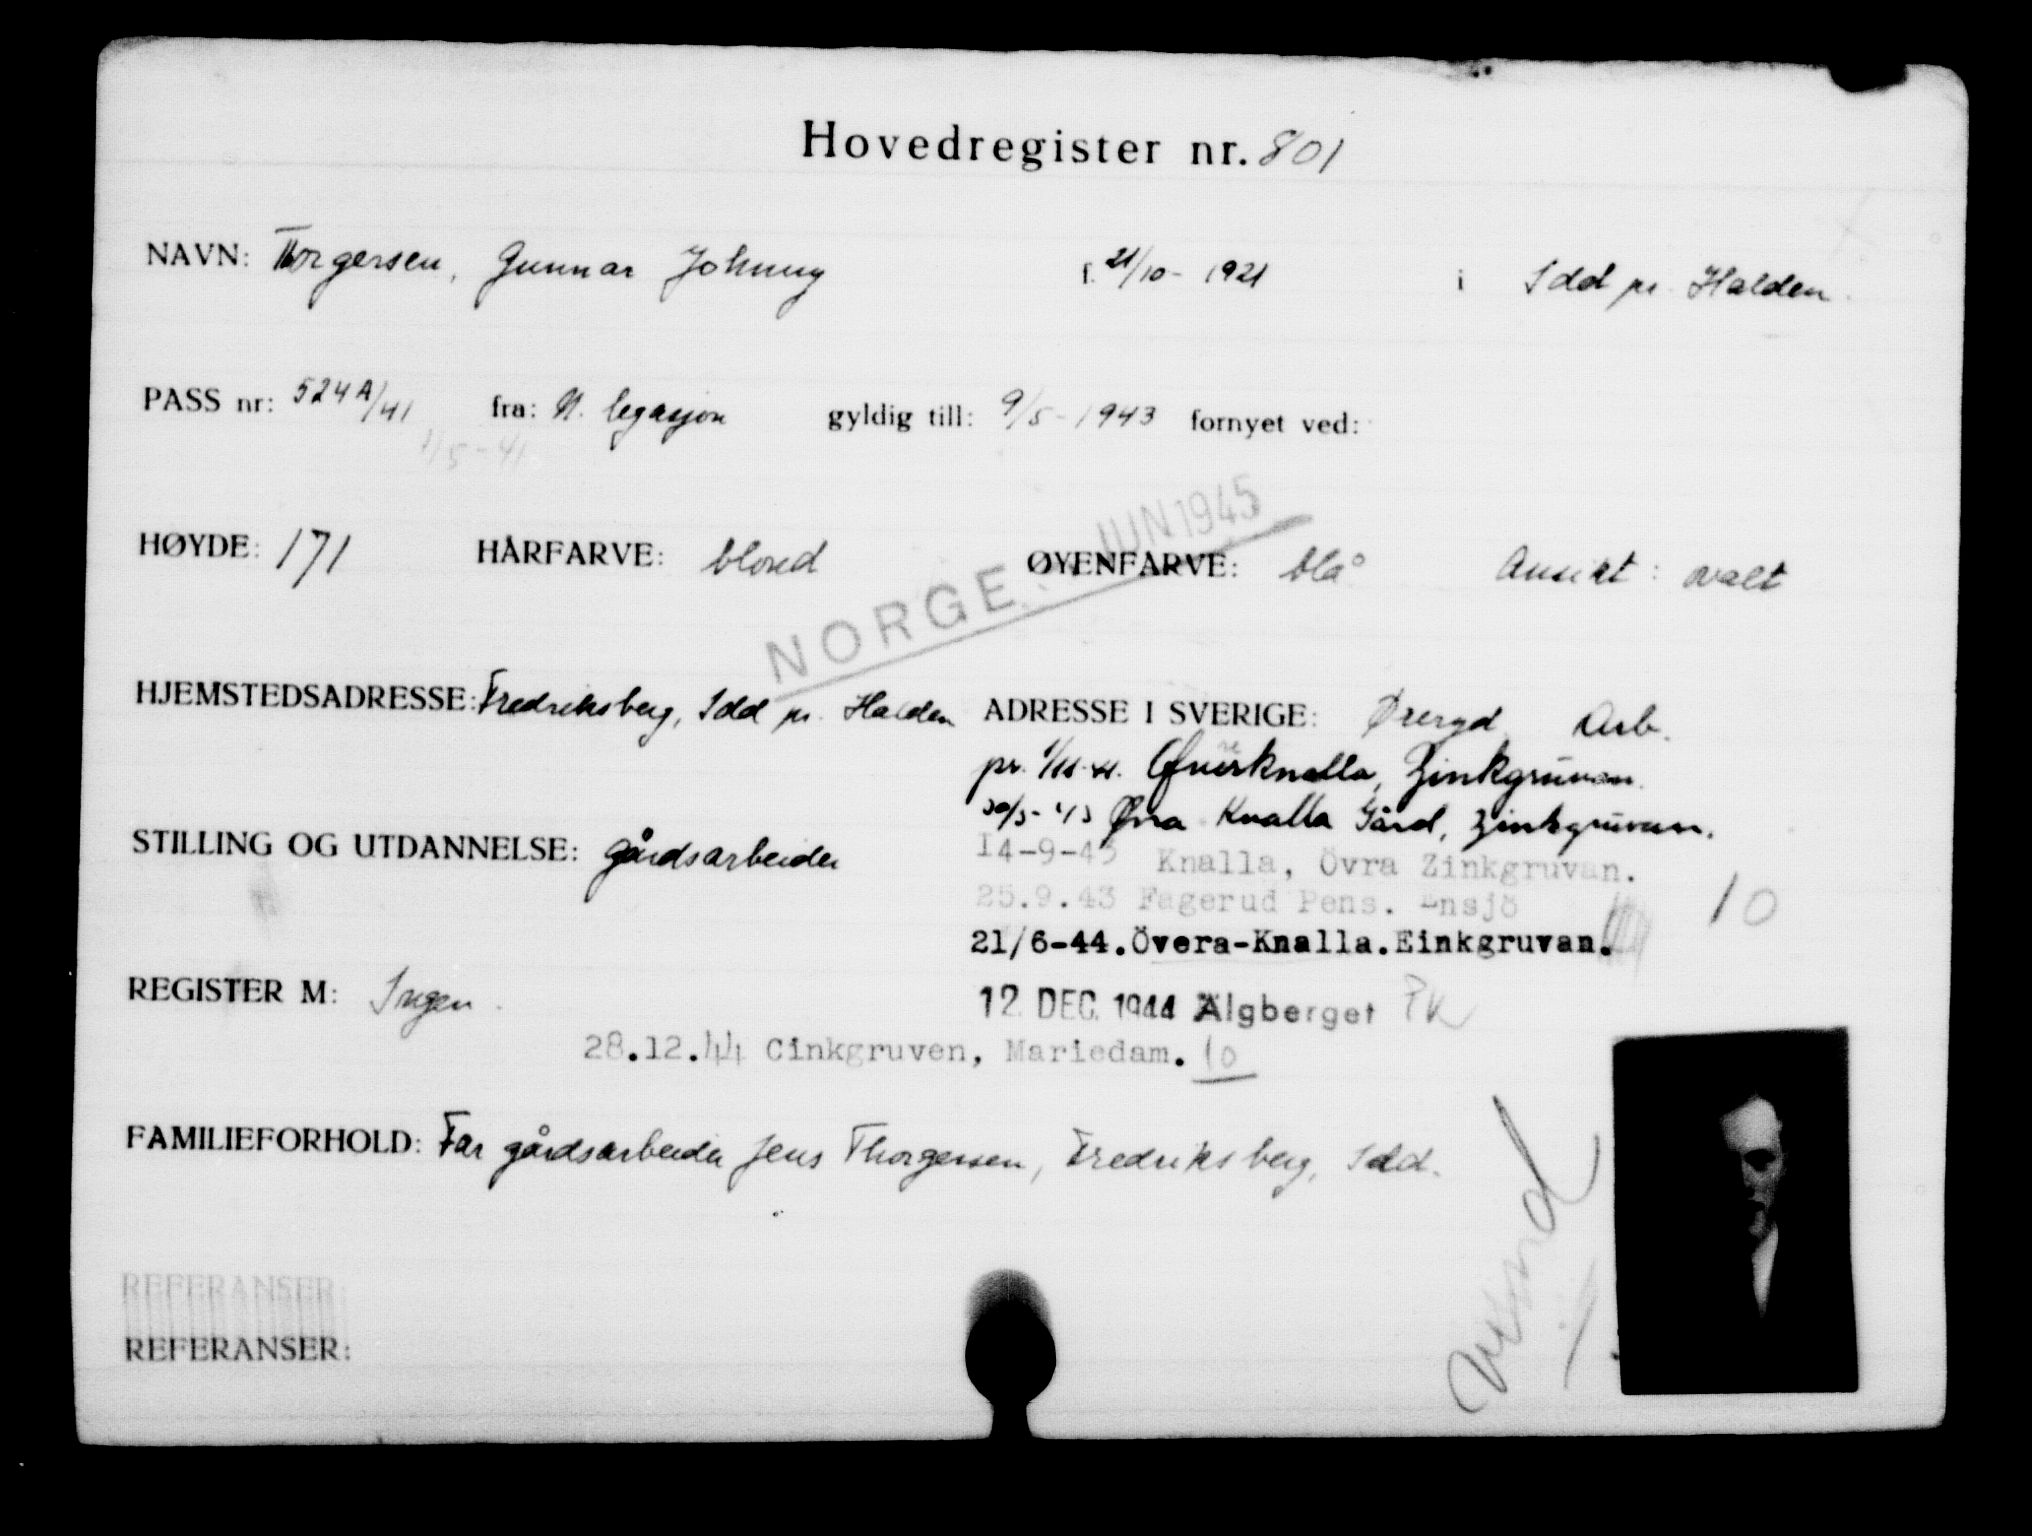 Hovedregister nr. 801
NAVN: Thorgersen, Gunnar Johnny f. 21/10 - 1921 i Idd pr. Halden.
PASS nr: 524A/41 fra: N. legasjon gyldig till: 9/5 - 1943 fornyet ved:
9/5 - 41
JUN 1945
HØYDE: 171 HÅRFARVE: blond ØYENFARVE: blå Ansikt: ovalt
NORGE
HJEMSTEDSADRESSE: Fredriksberg, Idd pr. Halden ADRESSE I SVERIGE: Øreryd Arb.
pr. Zinkgruvan.
Øvra Knalla Gård, Zinkgruvan.
STILLING OG UTDANNELSE: gårdsarbeider
14-9-43 Knalla, Övra Zinkgruvan.
25.9.43 Fagerud Pens. Ensjö 10
21/6-44. Övera-Knalla. Einkgruvan.
REGISTER M: Ingen.
12. DEC. 1944 Älgberget
28.12.44 Cinkgruven, Mariedam. 10
FAMILIEFORHOLD: Far gårdsarbeider Jens Thorgersen, Fredriksberg, Idd.
REFERANSER:
REFERANSER: